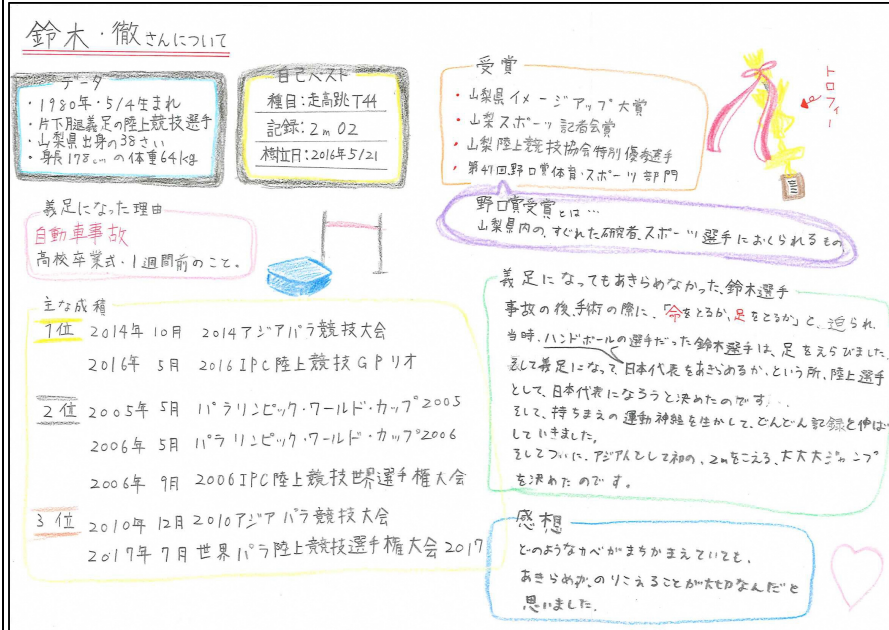 鈴木・徹さんについて
データ
・1980年・5/4生まれ
・片下腿義足の陸上競技選手
・山梨県出身の38さい
・身長178cmの体重64kg
自己ベスト
種目:走高跳T44
記録:2m02
樹立日:2016年5/21
受賞
・山梨県イメージアップ大賞
・山梨スポーツ記者会賞
・山梨陸上競技協会特別優秀選手
・第47回野口賞体育・スポーツ部門
トロフィー
野口賞受賞とは…
山梨県内の、すぐれた研究者、スポーツ選手におくられるもの
義足になった理由
自動車事故
高校卒業式・1週間前のこと。
主な成積
1位 2014年10月 2014アジアパラ競技大会
2016年 5月 2016IPC陸上競技GPリオ
2位 2005年 5月 パラリンピック・ワールド・カップ2005
2006年 5月 パラリンピック・ワールド・カップ2006
2006年 9月 2006IPC陸上競技世界選手権大会
3位 2010年 12月 2010アジアパラ競技大会
2017年 7月 世界パラ陸上競技選手権大会2017
義足になってもあきらめなかった、鈴木選手
事故の後、手術の際に、「命をとるか、足をとるか」と、迫られ、
当時、ハンドボールの選手だった鈴木選手は、足をえらびました。
そして義足になって、日本代表をあきらめるか、という所、陸上選手
として、日本代表になろうと決めたのです...
そして、持ちまえの運動神経を生かして、どんどん記録と伸ば
していきました。
そしてついに、アジア人として初の、2mをこえる、大大大ジャンプ
を決めたのです。
感想
どのようなカベがまちかまえていても、
あきらめず、のりこえることが大切なんだと
思いました。